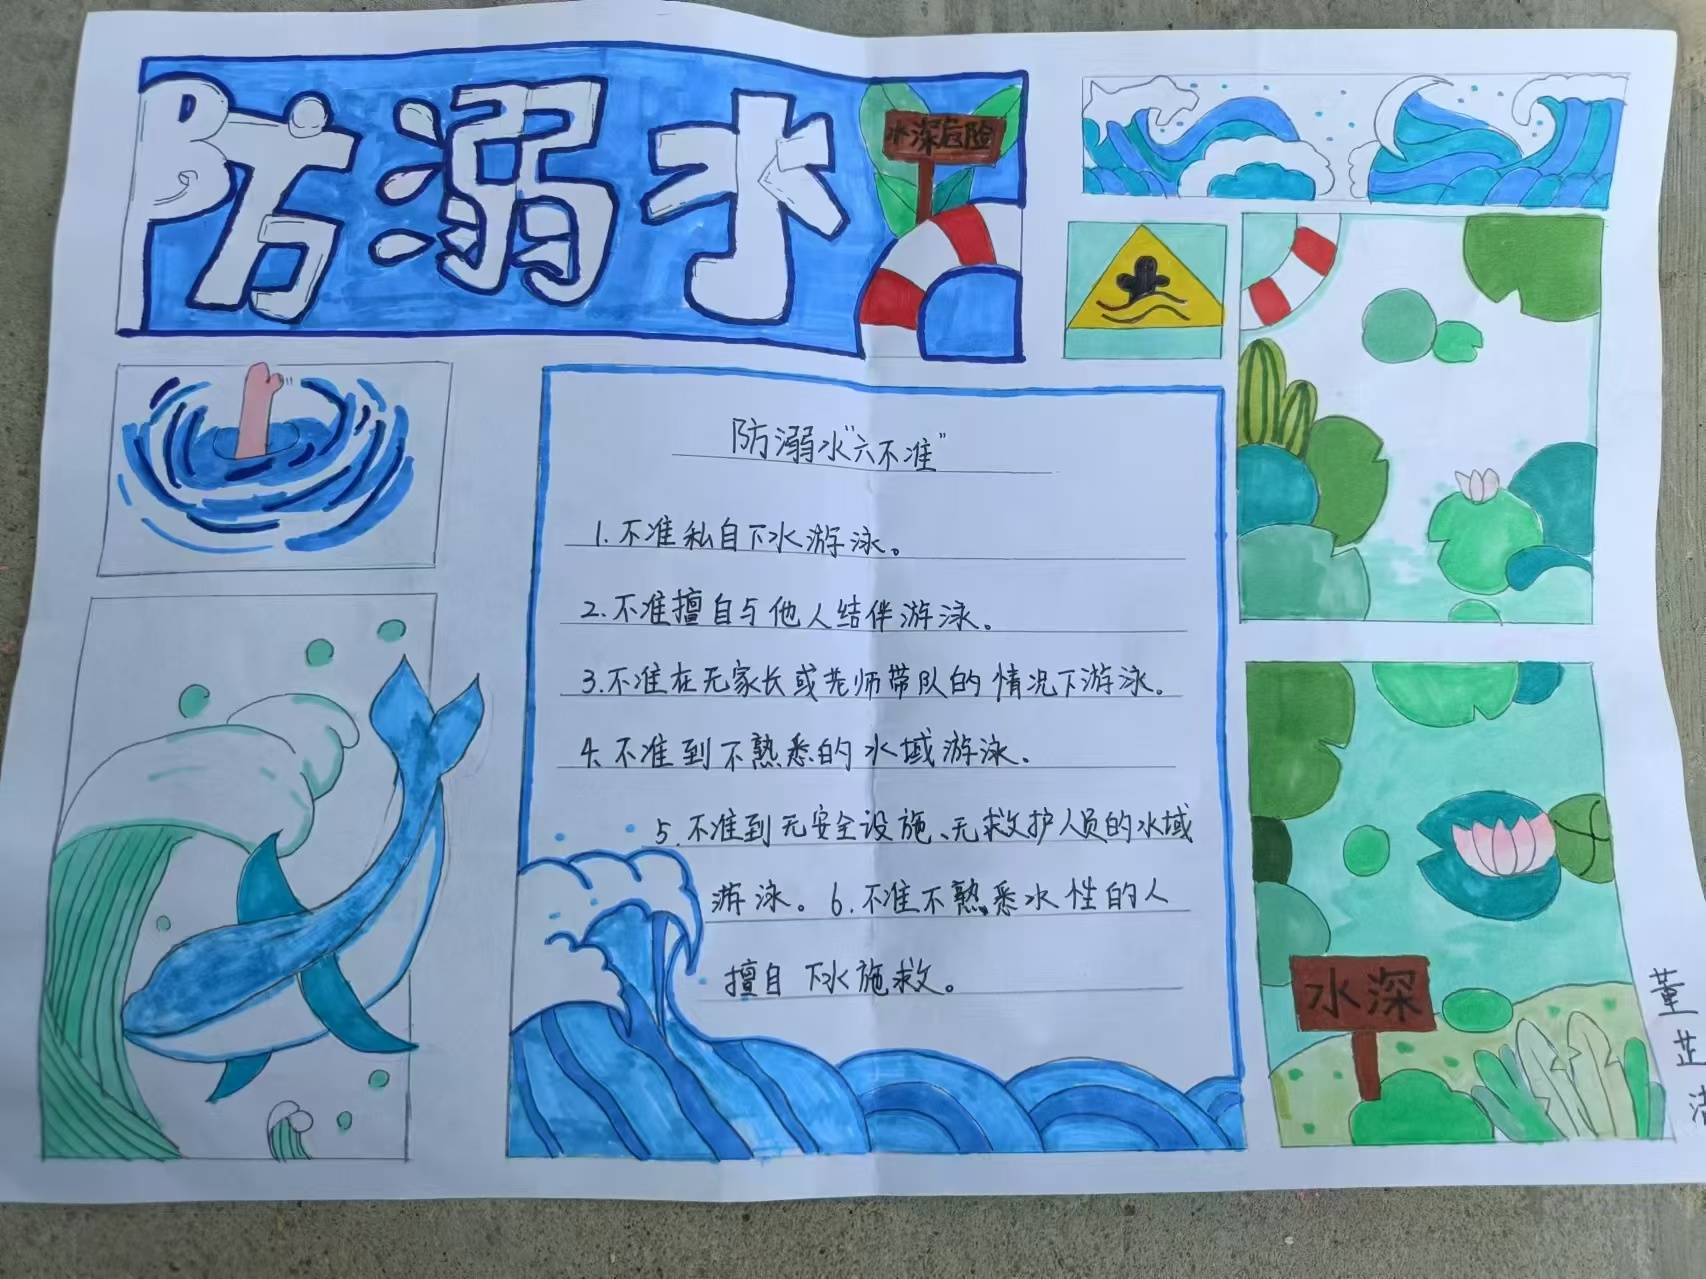 防溺水
水深危险
防溺水“六不准”
1.不准私自下水游泳。
2.不准擅自与他人结伴游泳。
3.不准在无家长或老师带队的情况下游泳。
4.不准到不熟悉的水域游泳.
5.不准到无安全设施、无救护人员的水域
游泳。6.不准不熟悉水性的人
擅自下水施救。
水深
董芷